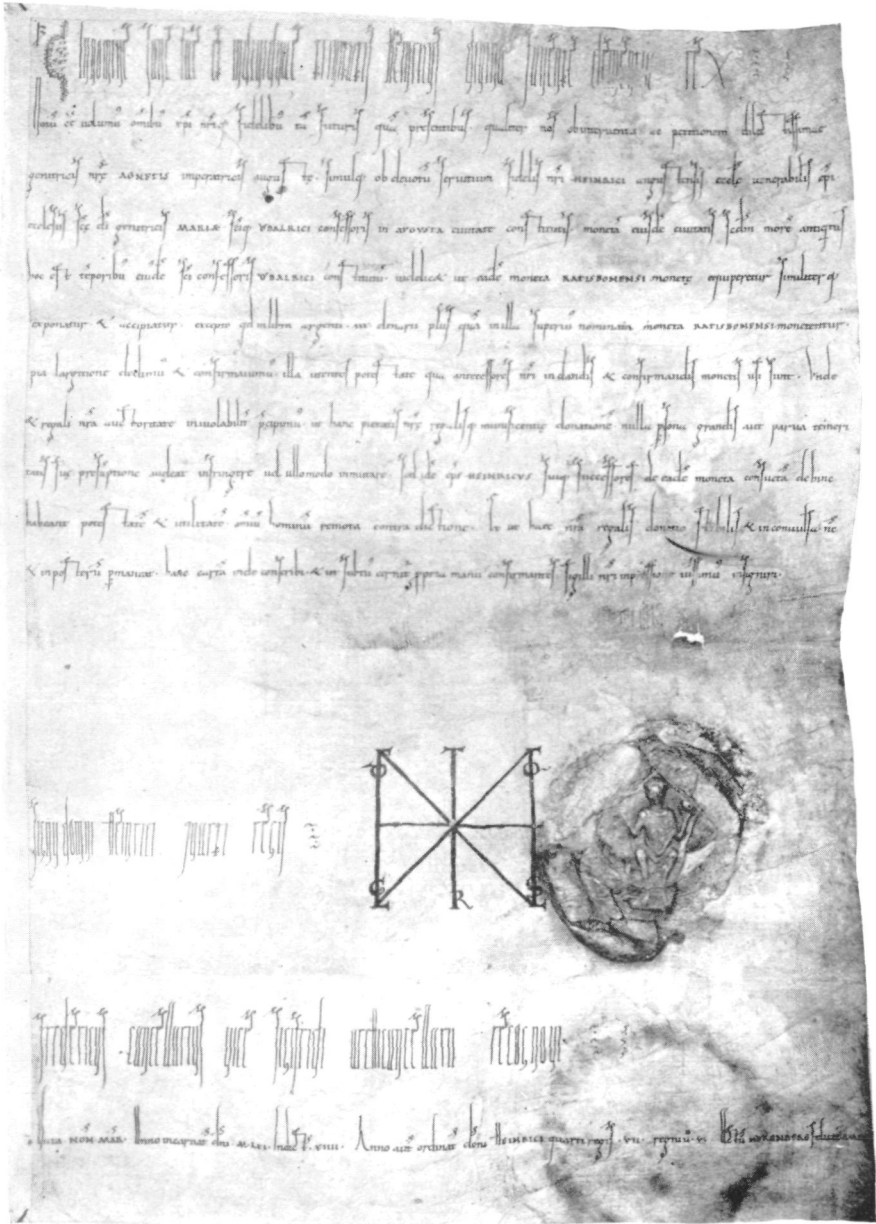 In nomine sanctę et indiuiduę heinricus diuina fauente clementia rex
Notū eē uolum' omib; xpi nrisq; fidelib; tā futuris quā presentibus qualiter nos ob interuentū ac petitionem dilectissimę
genitricis nrę AGNETIS imperatricis augustę simulq; ob deuotū seruitium fidelis nri HEINRICI augustensis eccłę uenerabilis epi
ecclesiis scę di genitricis MARIAE sciq; VDALRICI confessoris in AVGVSTA ciuitate constructis monetā eiusdē ciuitatis scdm morē antiquū
hoc est tēporib; eiusdē sci confessoris VDALRICI uidelic& ut eadē moneta RATISBONENSI monetę equiperetur similiterq;
exponatur & accipiatur excepto qd in libra argenti denarii plus quā in illa superius nominata moneta RATISBONENSI monetentur
pia largitione dedimus & confirmauim' illa utentes potestate qua antecessores nri in dandis & confirmandis monetis usi sunt. Vnde
& regali nra auctoritate inuiolabilit' p̄cipim' ut hanc pietatis nrę regalisq; munificentię donationē nulla psona grandis aut parua temeri
tatis suę presūptione audeat infringere uel ullomodo inmutare. Sed idē eps HEINRICVS suiq; successores de eadē moneta dehinc
habeant potestatē & utilitatē omiū hominū remota contradictione. Et ut haec nra regalis donatio stabilis & inconuulsa
& in posterū pmaneat. hanc cartā inde conscribi & ut subtus cernit' ppria manu confirmantes sigilli nri inpressione iussim' insigniri.
Signum domni heinrici quarti regis
Fredericus cancellarius uice archicancellarii recognoui
Data NON. MAR. Anno incarnat' dni M.LXI. Indict'. XIIII. Anno aut' ordinat' domi HEINRICI quarti regis. VII. regni u' VI.